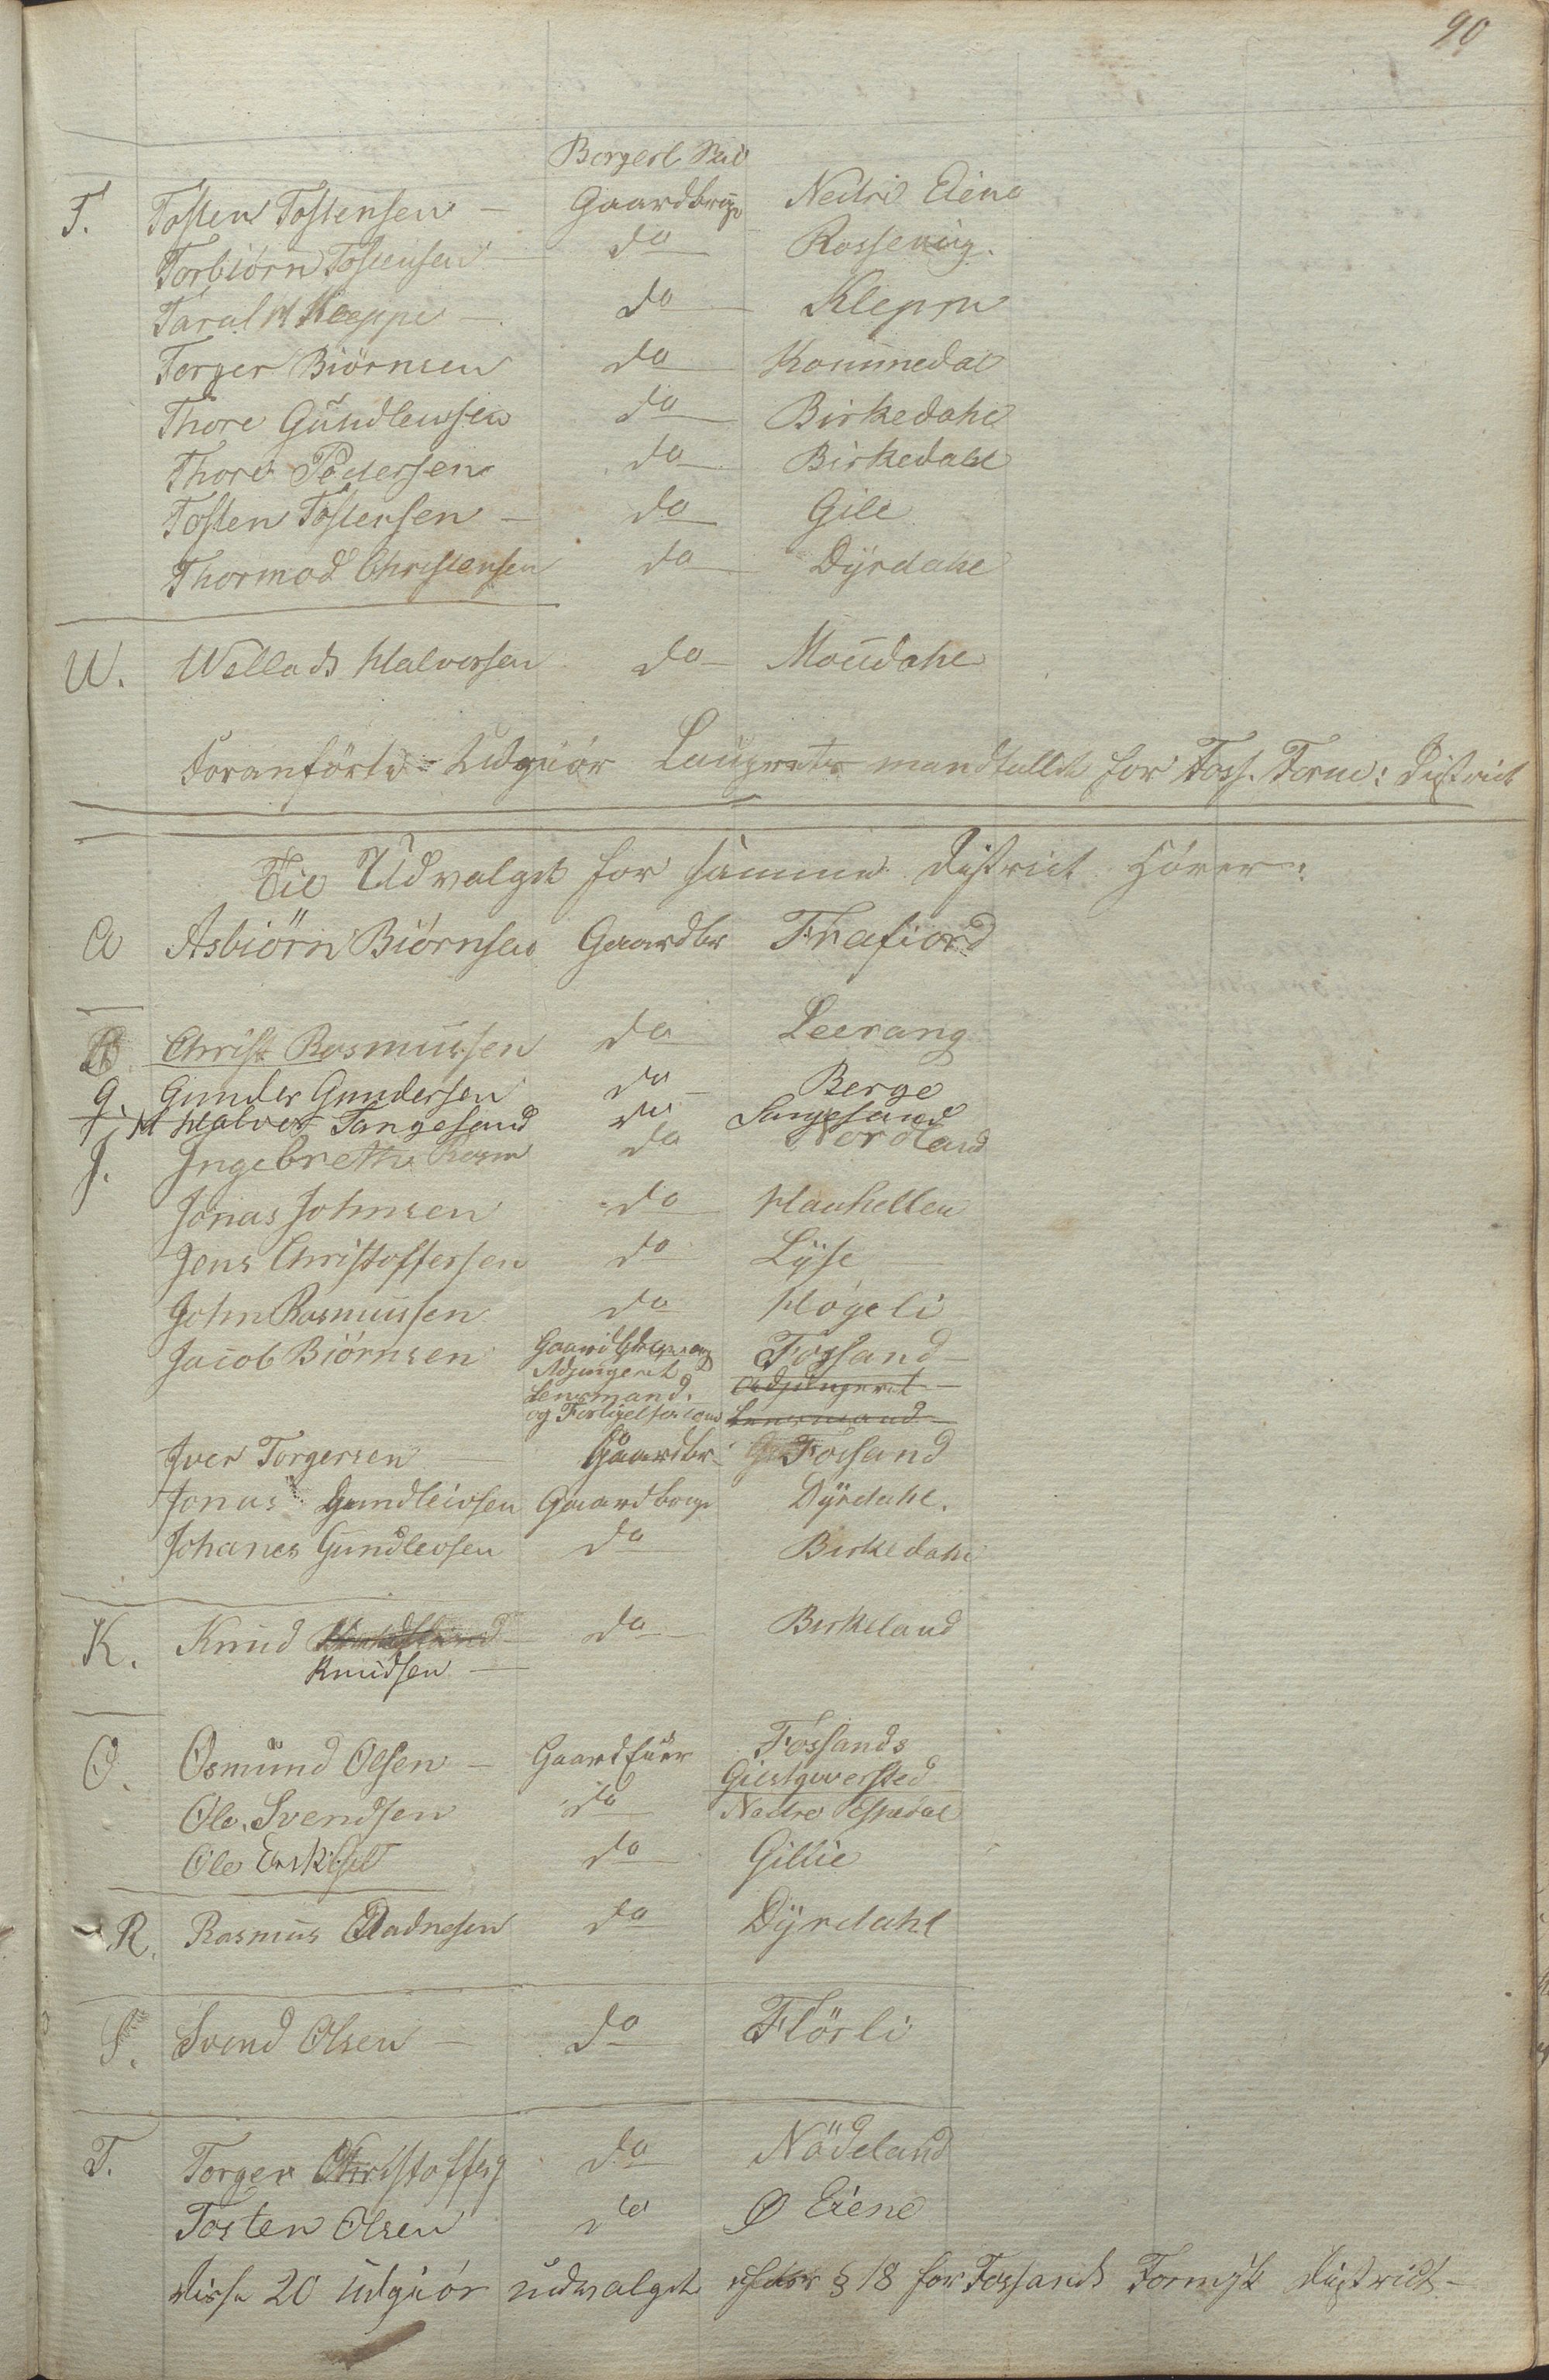 90
Borgerl
T. Tosten Tostensen - Gaardbrug Nedre Eiene
Torbiörn Tostensen do Rossevig.
Taral Kleppe - do Klepp
Torger Biörnsen do Kommedal
Thore Gundleivsen do Birkedahl
Thore Pedersen do Birkedahl
Tosten Tostensen - do Gile
Thormod Christensen do Dÿrdahl
W. Wellads Halvorsen do Moudahl
Foranförte Udgiör Laugrets mandtallet for Foss. Form: District
Til Udvalget for samme District hörer:
A Asbiörn Biörnsen Gaardbr Frafiord
C. Christ Rasmussen do Leerang
G. Gunder Gundersen do Berge
H Halvor Tangesand do Sangesand
J. Ingebreth Rasm do Nordland
Jonas Johnsen do Hauhellen
Jens Christoffersen do Lÿse
John Rasmussen do Högeli
Jacob Biörnsen Fossand -
Adjungeret
Lensmand. Adjungeret -
og Forligelses Lensmand -
Iver Torgersen - Gaardbr. Fossand
Jonas Gundleivsen Gaardbrug Dÿrdahl.
Johanes Gundlevsen do Birkedahl
K. Knud do Birkeland
Knudsen -
O. Osmund Olsen - Gaardbruer Fossands
Giestgiversted
Ole Svendsen do Nedre Espedal
Ole do Gillie
R. Rasmus Oladnesen do Dÿrdahl
S. Svend Olsen - do Flörli
T. Torger Christoffers do Nödeland
Tosten Olsen do Ö Eiene
disse 20 udgiör udvalget efter § 18 for Fossands Formsk District -